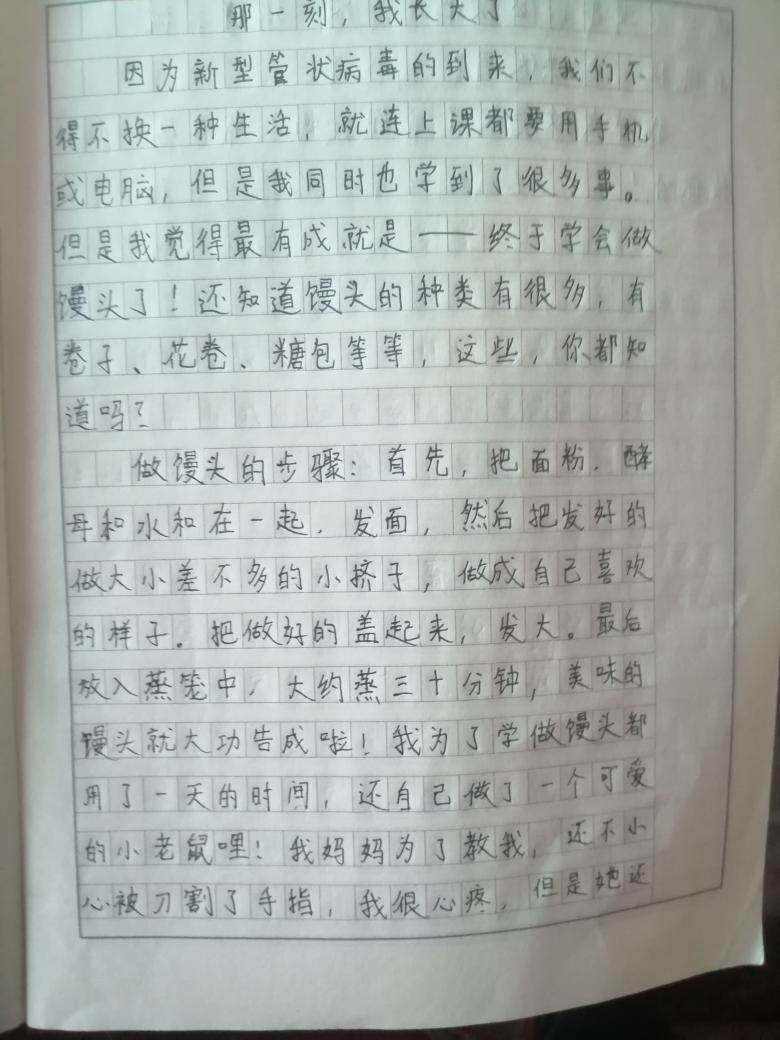 那一刻，我长大了
因为新型管状病毒的到来，我们不
得不换一种生活，就连上课都要用手机
或电脑，但是我同时也学到了很多事。
但是我觉得最有成就是——终于学会做
馒头了！还知道馒头的种类有很多，有
卷子、花卷、糖包等等，这些，你都知
道吗？
做馒头的步骤：首先，把面粉．酵
母和水和在一起．发面，然后把发好的
做大小差不多的小挤子，做成自己喜欢
的样子。把做好的盖起来，发大。最后
放入蒸笼中，大约蒸三十分钟，美味的
馒头就大功告成啦！我为了学做馒头都
用了一天的时间，还自己做了一个可爱
的小老鼠哩！我妈妈为了教我，还不小
心被刀割了手指，我很心疼，但是她还